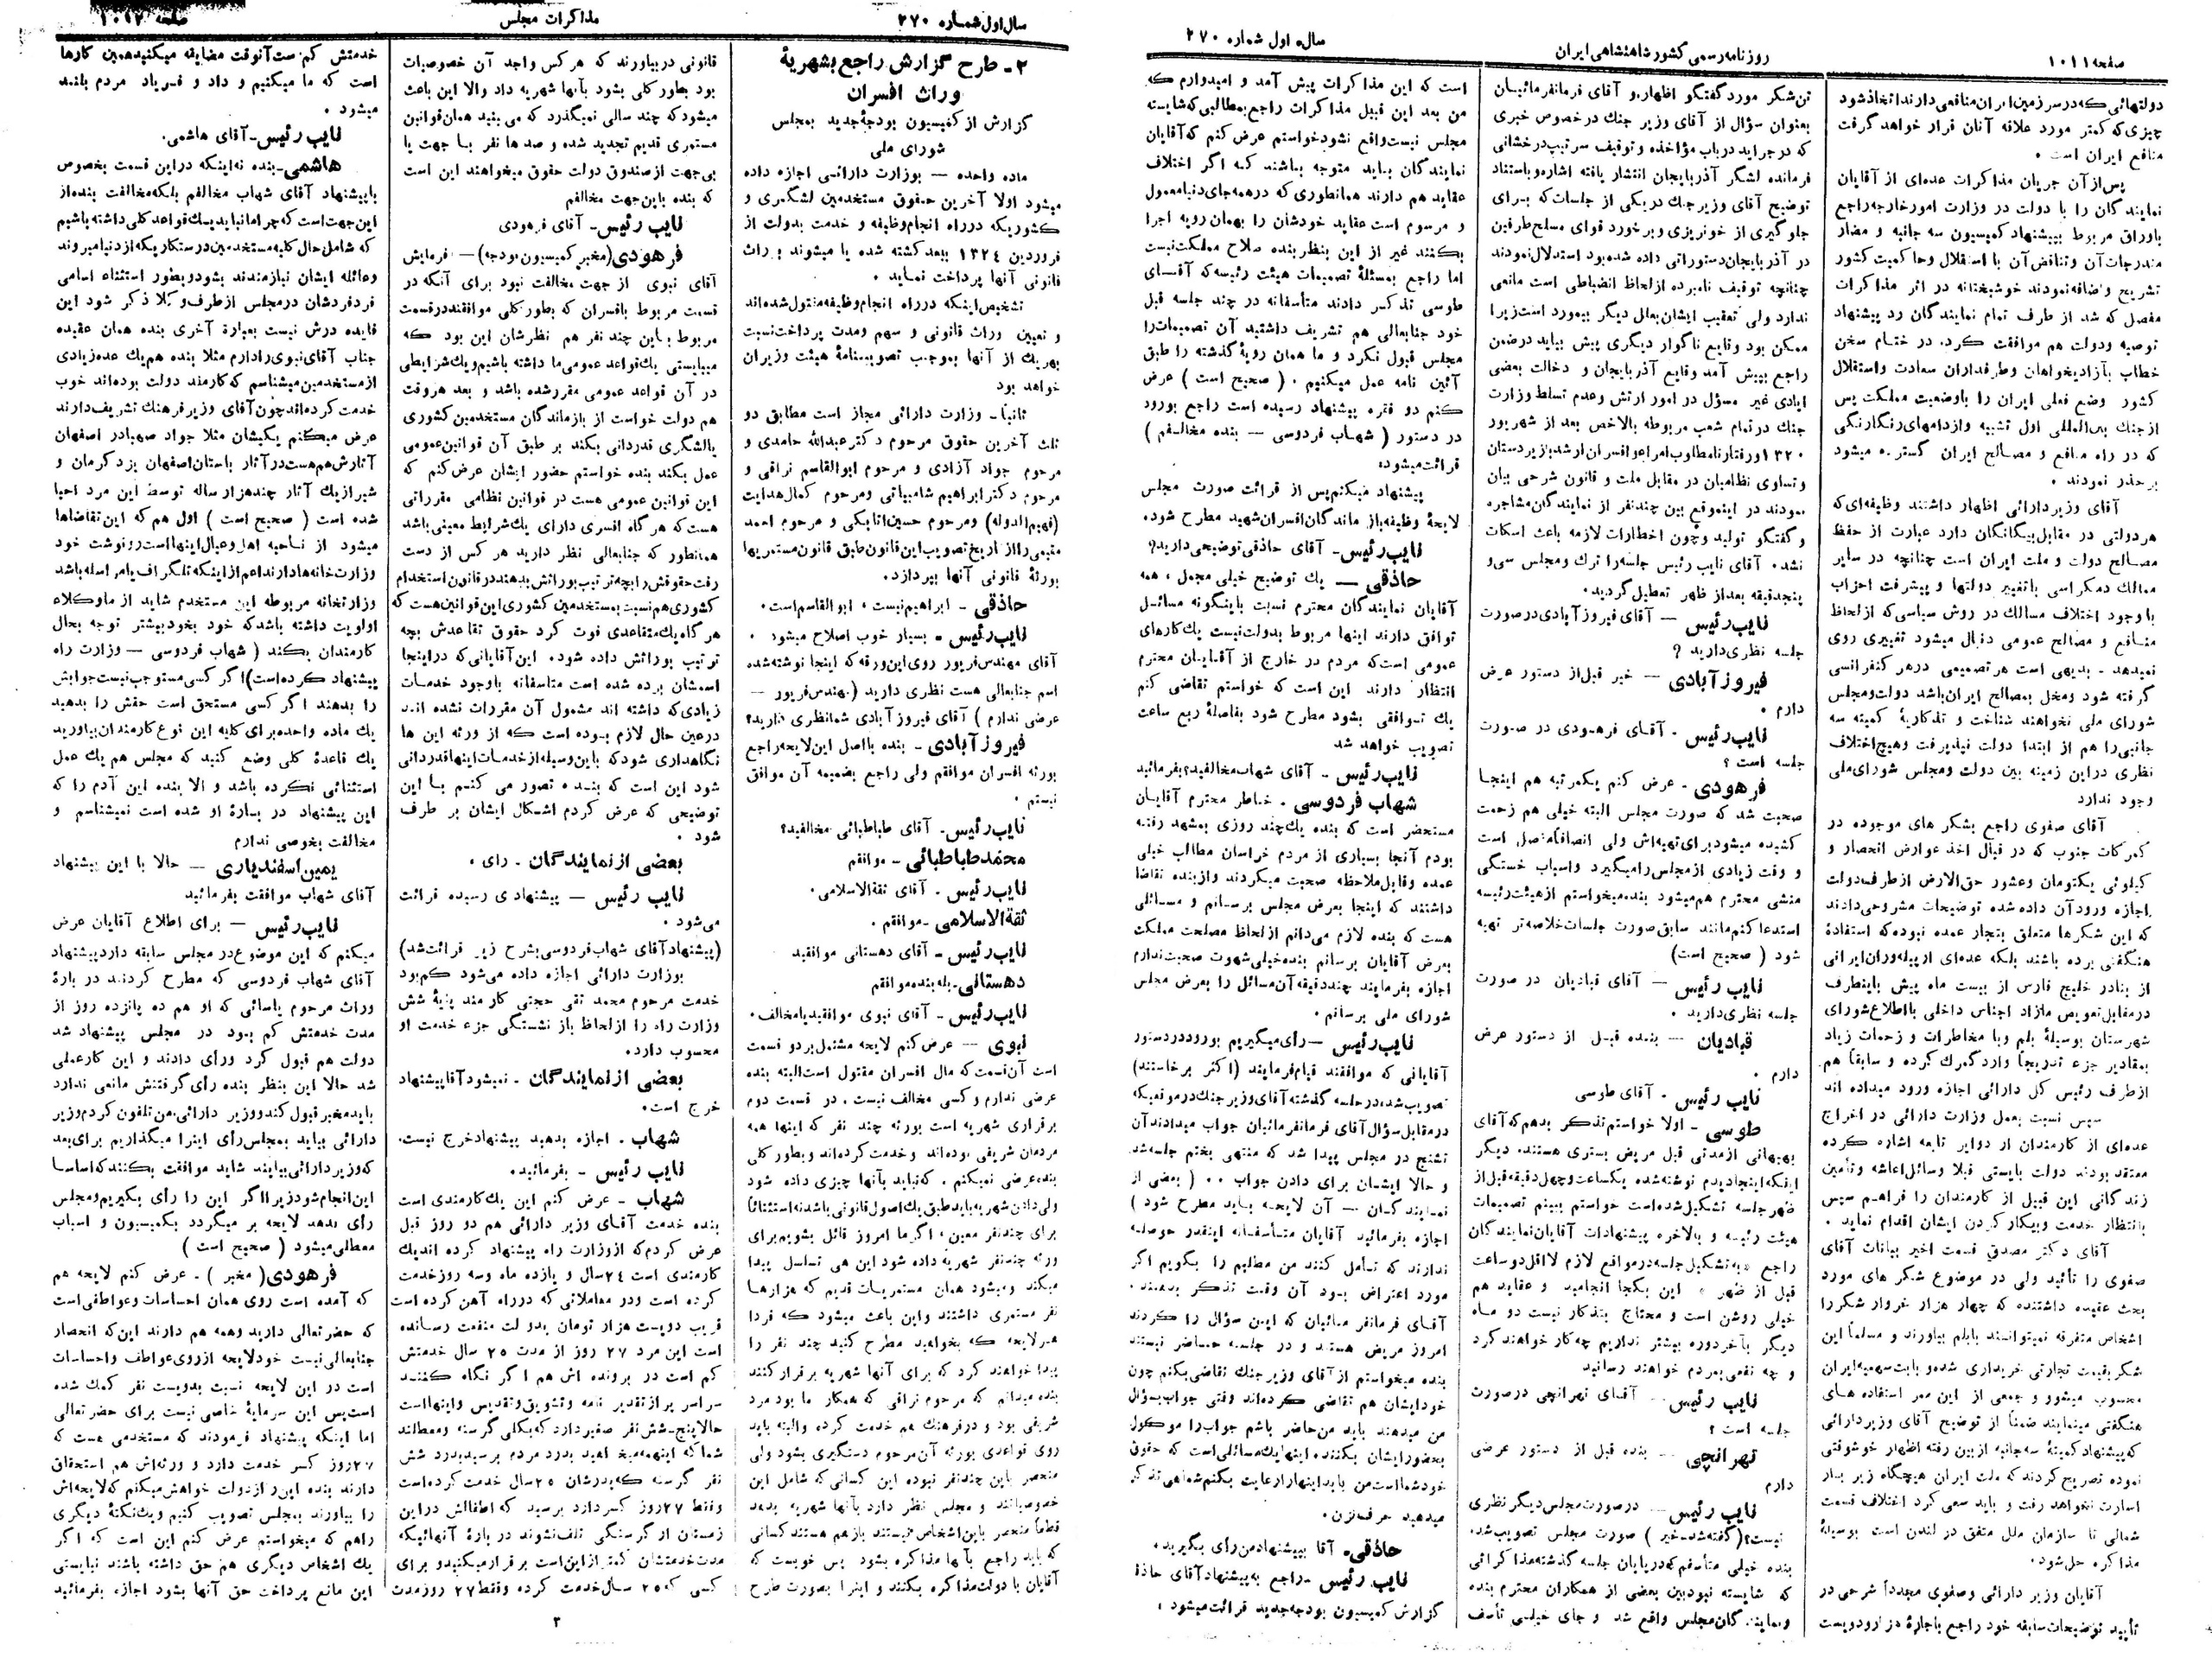 صفحه ۱۰۱۱
روزنامه رسمی کشور شاهنشاهی ایران
سال اول شماره ۲۷۰
دولتهائی که در سرزمین ایران منافعی دارند اتخاذ شود
چیزی که کمتر مورد علاقه آنان قرار خواهد گرفت
منافع ایران است .
پس از آن جریان مذاکرات عده‌ای از آقایان
نمایندگان را با دولت در وزارت امور خارجه راجع
باوراق مربوط به پیشنهاد کمیسیون سه جانبه و مضار
مندرجات آن و تناقض آن با استقلال و حاکمیت کشور
تشریح و اضافه نمودند خوشبختانه در اثر مذاکرات
مفصل که شد از طرف تمام نمایندگان رد پیشنهاد
توصیه و دولت هم موافقت کرد، در ختام سخن
خطاب بآزادیخواهان و طرفداران سعادت و استقلال
کشور وضع فعلی ایران را باوضعیت مملکت پس
از جنگ بین‌المللی اول تشبیه و از دامهای رنگارنگی
که در راه منافع و مصالح ایران گسترده میشود
برحذر نمودند .
آقای وزیر دارائی اظهار داشتند وظیفه‌ای که
هر دولتی در مقابل بیگانگان دارد عبارت از حفظ
مصالح دولت و ملت ایران است چنانچه در سایر
ممالک دمکراسی با تغییر دولتها و پیشرفت احزاب
با وجود اختلاف مسالک در روش سیاسی که از لحاظ
منافع و مصالح عمومی دنبال میشود تغییری روی
نمیدهد - بدیهی است هر تصمیمی در هر کنفرانسی
گرفته شود و مخل بمصالح ایران باشد دولت و مجلس
شورای ملی نخواهند شناخت و تذکاریهٔ کمیته سه
جانبی را هم از ابتدا دولت نپذیرفت و هیچ اختلاف
نظری در این زمینه بین دولت و مجلس شورای ملی
وجود ندارد
آقای صفوی راجع بشکر های موجوده در
گمرکات جنوب که در قبال اخذ عوارض انحصار و
کیلوئی یکتومان و عشور حق‌الارض از طرف دولت
اجازه ورود آن داده شده توضیحات مشروحی دادند
که این شکرها متعلق بتجار عمده نبوده که استفادهٔ
هنگفتی برده باشند بلکه عده‌ای از پیله‌وران ایرانی
از بنادر خلیج فارس از بیست ماه پیش باینطرف
در مقابل تعویض مازاد اجناس داخلی با اطلاع شورای
شهرستان بوسیلهٔ بلم و با مخاطرات و زحمات زیاد
بمقادیر جزء تدریجاً وارد گمرک کرده و سابقاً هم
از طرف رئیس کل دارائی اجازه ورود میداده اند
سپس نسبت بعمل وزارت دارائی در اخراج
عده‌ای از کارمندان از دوایر تابعه اشاره کرده
معتقد بودند دولت بایستی قبلا وسائل اعاشه و تأمین
زندگانی این قبیل از کارمندان را فراهم سپس
بانتظار خدمت و بیکار کردن ایشان اقدام نماید .
آقای دکتر مصدق قسمت اخیر بیانات آقای
صفوی را تأئید ولی در موضوع شکر های مورد
بحث عقیده داشتند که چهار هزار خروار شکر را
اشخاص متفرقه نمیتوانند با بلم بیاورند و مسلماً این
شکر بقیمت تجارتی خریداری شده و بابت سهمیه ایران
محسوب میشود و جمعی از این ممر استفاده های
هنگفتی مینمایند ضمناً از توضیح آقای وزیر دارائی
که پیشنهاد کمیتهٔ سه جانبه از بین رفته اظهار خوشوقتی
نموده تصریح کردند که ملت ایران هیچگاه زیر بار
اسارت نخواهد رفت و باید سعی کرد اختلاف قسمت
شمالی تا سازمان ملل متفق در لندن است بوسیلهٔ
مذاکره حل شود.
آقایان وزیر دارائی و صفوی مجدداً شرحی در
تأیید توضیحات سابقه خود راجع باجازهٔ دو هزار و دویست
تن شکر مورد گفتگو اظهار، و آقای فرمانفرمائیان
بعنوان سؤال از آقای وزیر جنگ در خصوص خبری
که در جراید در باب مؤاخذه و توقیف سرتیپ درخشانی
فرمانده لشگر آذربایجان انتشار یافته اشاره و باستناد
توضیح آقای وزیر جنگ در یکی از جلسات که برای
جلوگیری از خونریزی و برخورد قوای مسلح طرفین
در آذربایجان دستوراتی داده شده بود استدلال نمودند
چنانچه توقیف نامبرده از لحاظ انضباطی است مانعی
ندارد ولی تعقیب ایشان بعلل دیگر بیمورد است زیرا
ممکن بود وقایع ناگوار دیگری پیش بیاید در ضمن
راجع به پیش آمد وقایع آذربایجان و دخالت بعضی
ایادی غیر مسؤل در امور ارتش و عدم تسلط وزارت
جنگ در تمام شعب مربوطه بالاخص بعد از شهریور
۱۳۲۰ و رفتار نامطلوب امراء و افسران ارشد با زیردستان
و تساوی نظامیان در مقابل ملت و قانون شرحی بیان
نمودند در اینموقع بین چند نفر از نمایندگان مشاجره
و گفتگو تولید و چون اخطارات لازمه باعث اسکات
نشد، آقای نایب رئیس جلسه را ترک و مجلس سی و
پنج دقیقه بعد از ظهر تعطیل گردید.
نایب رئیس — آقای فیروزآبادی در صورت
جلسه نظری دارید ؟
فیروزآبادی — خیر قبل از دستور عرض
دارم .
نایب رئیس . آقای فرهودی در صورت
جلسه است ؟
فرهودی - عرض کنم یکمرتبه هم اینجا
صحبت شد که صورت مجلس البته خیلی هم زحمت
کشیده میشود برای تهیه‌اش ولی انصافاً مفصل است
و وقت زیادی از مجلس را میگیرد و اسباب خستگی
منشی محترم هم میشود بنده میخواستم از هیئت رئیسه
استدعا کنم مانند سابق صورت جلسات خلاصه تر تهیه
شود (صحیح است)
نایب رئیس — آقای قبادیان در صورت
جلسه نظری دارید .
قبادیان — بنده قبل از دستور عرض
دارم .
نایب رئیس . آقای طوسی
طوسی - اولا خواستم تذکر بدهم که آقای
بهبهانی از مدتی قبل مریض بستری هستند، دیگر
اینکه اینجا دیدم نوشته شده یکساعت و چهل دقیقه قبل از
ظهر جلسه تشکیل شده است خواستم ببینم تصمیمات
هیئت رئیسه و بالاخره پیشنهادات آقایان نمایندگان
راجع به تشکیل جلسه در مواقع لازم لااقل دو ساعت
قبل از ظهر . این بکجا انجامید و عقاید هم
خیلی روشن است و محتاج بتذکار نیست دو ماه
دیگر بآخر دوره بیشتر نداریم چه کار خواهند کرد
و چه نفعی بمردم خواهند رسانید
نایب رئیس — آقای تهرانچی در صورت
جلسه است ؟
تهرانچی — بنده قبل از دستور عرضی
دارم
نایب رئیس — در صورت مجلس دیگر نظری
نیست؟ (گفته شد - خیر) صورت مجلس تصویب شد.
بنده خیلی متأسفم که در پایان جلسه گذشته مذاکراتی
که شایسته نبود بین بعضی از همکاران محترم بنده
و نمایندگان مجلس واقع شد و جای خیلی تأسف
است که این مذاکرات پیش آمد و امیدوارم که
من بعد این قبیل مذاکرات راجع بمطالبی که شایسته
مجلس نیست واقع نشود خواستم عرض کنم که آقایان
نمایندگان باید متوجه باشند که اگر اختلاف
عقاید هم دارند همانطوری که در همه جای دنیا معمول
و مرسوم است عقاید خودشان را بهمان رویه اجرا
بکنند غیر از این بنظر بنده صلاح مملکت نیست
اما راجع بمسئلهٔ تصمیمات هیئت رئیسه که آقای
طوسی تذکر دادند متأسفانه در چند جلسه قبل
خود جنابعالی هم تشریف داشتید آن تصمیمات را
مجلس قبول نکرد و ما همان رویهٔ گذشته را طبق
آئین نامه عمل میکنیم . (صحیح است) عرض
کنم دو فقره پیشنهاد رسیده است راجع بورود
در دستور (شهاب فردوسی — بنده مخالفم)
قرائت میشود.
پیشنهاد میکنم پس از قرائت صورت مجلس
لایحهٔ وظیفه بازماندگان افسران شهید مطرح شود.
نایب رئیس - آقای حاذقی توضیحی دارید؟
حاذقی — یک توضیح خیلی مجمل، همه
آقایان نمایندگان محترم نسبت باینگونه مسائل
توافق دارند اینها مربوط بدولت نیست یک کارهای
عمومی است که مردم در خارج از آقایان محترم
انتظار دارند این است که خواستم تقاضی کنم
یک توافقی بشود مطرح شود بفاصلهٔ ربع ساعت
تصویب خواهد شد
نایب رئیس - آقای شهاب مخالفید؟ بفرمائید
شهاب فردوسی . خاطر محترم آقایان
مستحضر است که بنده یک چند روزی بمشهد رفته
بودم آنجا بسیاری از مردم خراسان مطالب خیلی
عمده و قابل ملاحظه صحبت میکردند و از بنده تقاضا
داشتند که اینجا بعرض مجلس برسانم و مسائلی
هست که بنده لازم می‌دانم از لحاظ مصلحت مملکت
بعرض آقایان برسانم بنده خیلی شهوت صحبت ندارم
اجازه بفرمایند چند دقیقه آن مسائل را بعرض مجلس
شورای ملی برسانم .
نایب رئیس — رأی میگیریم بورود در دستور
آقایانی که موافقند قیام فرمایند (اکثر برخاستند)
تصویب شد، در جلسه گذشته آقای وزیر جنگ در موقعیکه
در مقابل سؤال آقای فرمانفرمائیان جواب میدادند آن
تشنج در مجلس پیدا شد که منتهی بختم جلسه شد.
و حالا ایشان برای دادن جواب . . (بعضی از
نمایندگان — آن لایحه باید مطرح شود)
اجازه بفرمائید آقایان متأسفانه اینقدر حوصله
ندارند که تأمل کنند من مطلبم را بگویم اگر
مورد اعتراض بود آن وقت تذکر بدهند .
آقای فرمانفرمائیان که این سؤال را کردند
امروز مریض هستند و در جلسه حاضر نیستند
بنده میخواستم از آقای وزیر جنگ تقاضی بکنم چون
خودایشان هم تقاضی کرده‌اند وقتی جواب سؤال
من میدهند باید من حاضر باشم جواب را موکول
بحضور ایشان بکنند، اینها یک مسائلی است که حقوق
خود شما است من باید اینها را رعایت بکنم شماهی تذکر
میدهید حرف نزن.
حاذقی . آقا به پیشنهاد من رأی بگیرید،
نایب رئیس - راجع به پیشنهاد آقای حاذقی
گزارش کمیسیون بودجه جدید قرائت میشود .
سال اول شماره ۲۷۰
مذاکرات مجلس
صفحه ۱۰۱۲
۲ - طرح گزارش راجع بشهریهٔ
وراث افسران
گزارش از کمیسیون بودجهٔ جدید بمجلس
شورای ملی
ماده واحده — بوزارت دارائی اجازه داده
میشود اولا آخرین حقوق مستخدمین لشگری و
کشوریکه در راه انجام وظیفه و خدمت بدولت از
فروردین ۱۳۲۴ ببعد کشته شده یا میشوند بوراث
قانونی آنها پرداخت نماید .
تشخیص اینکه در راه انجام وظیفه مقتول شده‌اند
و تعیین وراث قانونی و سهم و مدت پرداخت نسبت
بهریک از آنها بموجب تصویبنامهٔ هیئت وزیران
خواهد بود
ثانیاً - وزارت دارائی مجاز است مطابق دو
ثلث آخرین حقوق مرحوم دکتر عبدالله حامدی و
مرحوم جواد آزادی و مرحوم ابوالقاسم نراقی و
مرحوم دکتر ابراهیم شامبیاتی و مرحوم کمال هدایت
(فهیم‌الدوله) و مرحوم حسین اتابکی و مرحوم احمد
مقیمی را از تاریخ تصویب این قانون طبق قانون مستمریها
بورثهٔ قانونی آنها بپردازد.
حاذقی - ابراهیم نیست، ابوالقاسم است.
نایب رئیس - بسیار خوب اصلاح میشود .
آقای مهندس فریور روی این ورقه که اینجا نوشته شده
اسم جنابعالی هست نظری دارید (مهندس فریور —
عرضی ندارم) آقای فیروزآبادی شما نظری دارید؟
فیروزآبادی - بنده با اصل این لایحه راجع
بورثه افسران موافقم ولی راجع بضمیمه آن موافق
نیستم .
نایب رئیس - آقای طباطبائی مخالفید؟
محمد طباطبائی - موافقم
نایب رئیس . آقای ثقة‌الاسلامی.
ثقة‌الاسلامی - موافقم .
نایب رئیس - آقای دهستانی موافقید
دهستانی - بله بنده موافقم
نایب رئیس - آقای نبوی موافقید یا مخالف.
نبوی — عرض کنم لایحه مشتمل بر دو قسمت
است آن قسمت که مال افسران مقتول است البته بنده
عرضی ندارم و کسی مخالف نیست . در قسمت دوم
برقراری شهریه است بورثه چند نفر که اینها همه
مردمان شریفی بوده‌اند و خدمت کرده‌اند و بطور کلی
بنده عرضی نمیکنم . که نباید بآنها چیزی داده شود
ولی دادن شهریه باید طبق یک اصول قانونی باشد نه استثنائاً
برای چند نفر معین، اگر ما امروز قائل بشویم برای
ورثه چند نفر شهریه داده شود این هی تسلسل پیدا
میکند و میشود همان مستمریات قدیم که هزارها
نفر مستمری داشتند و این باعث میشود که فردا
هر لایحه که بخواهید مطرح کنید چند نفر را
پیدا خواهند کرد که برای آنها شهریه برقرار کنند
بنده میدانم که مرحوم نراقی که همکار ما بود مرد
شریفی بود و در فرهنگ هم خدمت کرده والبته باید
روی قواعدی بورثه آن مرحوم دستگیری بشود ولی
منحصر باین چند نفر نبوده این کسانی که شامل این
خصوصیاتند و مجلس نظر دارد بآنها شهریه بدهد
قطعاً منحصر باین اشخاص نیستند باز هم هستند کسانی
که باید راجع بآنها مذاکره بشود پس خوبست که
آقایان با دولت مذاکره بکنند و اینرا بصورت طرح
قانونی دربیاورند که هر کس واجد آن خصوصیات
بود بطور کلی بشود بآنها شهریه داد والا این باعث
میشود که چند سالی نمیگذرد که می بینید همان قوانین
مستمری قدیم تجدید شده و صدها نفر با جهت یا
بی‌جهت از صندوق دولت حقوق میخواهند این است
که بنده باین جهت مخالفم
نایب رئیس - آقای فرهودی
فرهودی (مخبر کمیسیون بودجه) — فرمایش
آقای نبوی از جهت مخالفت نبود برای آنکه در
قسمت مربوط بافسران که بطور کلی موافقند در قسمت
مربوط باین چند نفر هم نظرشان این بود که
میبایستی یک قواعد عمومی ما داشته باشیم و یک شرایطی
در آن قواعد عمومی مقرر شده باشد و بعد هر وقت
هم دولت خواست از بازماندگان مستخدمین کشوری
یا لشگری قدردانی بکند بر طبق آن قوانین عمومی
عمل بکند بنده خواستم حضور ایشان عرض کنم که
این قوانین عمومی هست در قوانین نظامی مقرراتی
هست که هر گاه افسری دارای یک شرایط معینی باشد
همانطور که جنابعالی نظر دارید هر کس از دست
رفت حقوقش را بچه ترتیب بوراثش بدهند در قانون استخدام
کشوری هم نسبت بمستخدمین کشوری این قوانین هست که
هر گاه یک متقاعدی فوت کرد حقوق تقاعدش بچه
ترتیب بوراثش داده شود، این آقایانی که در اینجا
اسمشان برده شده است متاسفانه با وجود خدمات
زیادی که داشته اند مشمول آن مقررات نشده اند
در عین حال لازم بوده است که از ورثه این ها
نگاهداری شود که باین وسیله از خدمات اینها قدردانی
شود این است که بنده تصور می کنم با این
توضیحی که عرض کردم اشکال ایشان بر طرف
شود .
بعضی از نمایندگان . رای .
نایب رئیس — پیشنهادی رسیده قرائت
می‌شود .
(پیشنهاد آقای شهاب فردوسی بشرح زیر قرائت شد)
بوزارت دارائی اجازه داده می‌شود کم بود
خدمت مرحوم محمد تقی حجتی کارمند پایهٔ شش
وزارت راه را از لحاظ باز نشستگی جزء خدمت او
محسوب دارد.
بعضی از نمایندگان . نمیشود آقا پیشنهاد
خرج است.
شهاب . اجازه بدهید پیشنهاد خرج نیست.
نایب رئیس - بفرمائید.
شهاب - عرض کنم این یک کارمندی است
بنده خدمت آقای وزیر دارائی هم دو روز قبل
عرض کردم که از وزارت راه پیشنهاد کرده اند یک
کارمندی است ۲۴ سال و یازده ماه و سه روز خدمت
کرده است و در معاملاتی که در راه آهن کرده است
قریب دویست هزار تومان بدولت منفعت رسانده
است این مرد ۲۷ روز از مدت ۲۵ سال خدمتش
کم است در پرونده اش هم اگر نگاه کنند
سراسر پر از تقدیر نامه و تشویق و تقدیس و اینها است
حالا پنج - شش نفر صغیر دارد که بکلی گرسنه و معطلند
شما که اینهمه میخواهید بدرد مردم برسید بدرد شش
نفر گرسنه که پدرشان ۲۵ سال خدمت کرده است
و فقط ۲۷ روز کسر دارد برسید که اطفالش در این
زمستان از گرسنگی تلف نشوند در بارهٔ آنهائیکه
مدت خدمتشان کمتر از این است برقرار میکنید و برای
کسی که ۲۵ سال خدمت کرده و فقط ۲۷ روز مدت
خدمتش کم است آنوقت مضایقه میکنید همین کارها
است که ما میکنیم و داد و فریاد مردم بلند
میشود .
نایب رئیس - آقای هاشمی.
هاشمی - بنده نه اینکه در این قسمت بخصوص
با پیشنهاد آقای شهاب مخالفم بلکه مخالفت بنده از
این جهت است که چرا ما نباید یک قواعد کلی داشته باشیم
که شامل حال کلیه مستخدمین درستکاریکه از دنیا میروند
و عائله ایشان نیازمندند بشود و بطور استثناء اسامی
فرد فردشان در مجلس از طرف وکلا ذکر شود این
قایده درش نیست بعبارة آخری بنده همان عقیده
جناب آقای نبوی را دارم مثلا بنده هم یک عده زیادی
از مستخدمین میشناسم که کارمند دولت بوده‌اند خوب
خدمت کرده‌اند چون آقای وزیر فرهنگ تشریف دارند
عرض میکنم یکیشان مثلا جواد صهبا در اصفهان
آثارش هم هست در آثار باستان اصفهان یزد کرمان و
شیراز یک آثار چند هزار ساله توسط این مرد احیا
شده است (صحیح است) اول هم که این تقاضاها
میشود از ناحیه اهل و عیال اینها است رونوشت خود
وزارت خانه ها دارند اعم از اینکه تلگراف یا مراسله باشد
وزارتخانه مربوطه این مستخدم شاید از ما وکلاء
اولویت داشته باشد که خود بخود بیشتر توجه بحال
کارمندان بکند (شهاب فردوسی — وزارت راه
پیشنهاد کرده است) اگر کسی مستوجب نیست جوابش
را بدهند اگر کسی مستحق است حقش را بدهید
یک ماده واحده برای کلیه این نوع کارمندان بیاورید
یک قاعدهٔ کلی وضع کنید که مجلس هم یک عمل
استثنائی نکرده باشد و الا بنده این آدم را که
این پیشنهاد در بارهٔ او شده است نمیشناسم و
مخالفت بخوصی ندارم
یمین اسفندیاری — حالا با این پیشنهاد
آقای شهاب موافقت بفرمائید
نایب رئیس — برای اطلاع آقایان عرض
میکنم که این موضوع در مجلس سابقه دارد پیشنهاد
آقای شهاب فردوسی که مطرح کردند در بارهٔ
وراث مرحوم یاسائی که او هم ده پانزده روز از
مدت خدمتش کم بود در مجلس پیشنهاد شد
دولت هم قبول کرد و رأی دادند و این کار عملی
شد حالا این بنظر بنده رأی گرفتنش مانعی ندارد
باید مخبر قبول کند و وزیر دارائی، من تلفون کردم وزیر
دارائی بیاید بمجلس رأی اینرا میگذاریم برای بعد
که وزیر دارائی بیایند شاید موافقت بکنند که اساسا
این انجام شود زیرا اگر این را رأی بگیریم و مجلس
رأی بدهد لایحه بر میگردد بکمیسیون و اسباب
معطلی میشود (صحیح است)
فرهودی (مخبر) . عرض کنم لایحه هم
که آمده است روی همان احساسات و عواطفی است
که حضرتعالی دارید و همه هم دارند این که انحصار
جنابعالی نیست خود لایحه از روی عواطف و احساسات
است در این لایحه نسبت بدویست نفر کمک شده
است پس این سرمایهٔ خاصی نیست برای حضرتعالی
اما اینکه پیشنهاد فرمودند که مستخدمی هست که
۲۷ روز کسر خدمت دارد و ورثه‌اش هم استحقاق
دارند بنده این را از دولت خواهش میکنم که لایحه‌اش
را بیاورند بمجلس تصویب کنیم و یک نکتهٔ دیگری
راهم که میخواستم عرض کنم این است که اگر
یک اشخاص دیگری هم حق داشته باشند نبایستی
این مانع پرداخت حق آنها بشود اجازه بفرمائید
۳